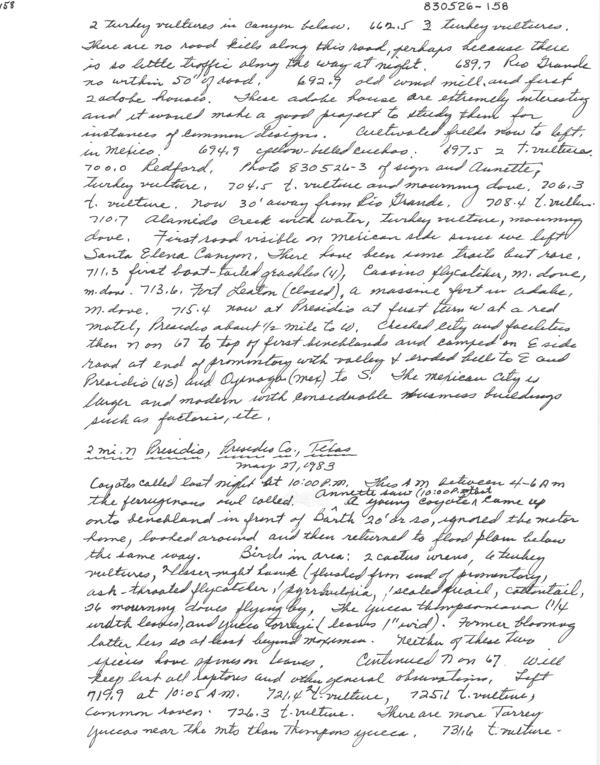 158
830526-158
2 turkey vultures in canyon below. 662.5 3 turkey vultures.
There are no road kills along this road, perhaps because there
is so little traffic along the way at night. 689.7 Rio Grande
no within 50' of road. 692.9 old wind mill, and first
2 adobe houses. These adobe house are extremely interesting
and it would make a good project to study them for
instances of common designs. Cultivated fields now to left.
in Mexico. 694.9 yellow-billed cuckoo. 697.5 2 t. vultures.
700.0 Redford. Photo 830526-3 of sign and Annette,
turkey vulture. 704.5 t. vulture and mourning dove. 706.3
t. vulture. now 30' away from Rio Grande. 708.4 t. vulture.
710.7 Alamido Creek with water, turkey vulture, mourning
dove. First road visible on Mexican side since we left
Santa Elena Canyon. There have been some trails but rare.
711.3 first boat-tailed grackles (4), Cassins flycatcher, m. dove,
m. dove. 713.6. Fort Leaton (closed), a massive fort in adobe,
m. dove. 715.4 now at Presidio at first turn w at a red
motel, Presidio about 1/2 mile to W. Checked city and facilities
then N on 67 to top of first benchlands and camped on E side
road at end of promontory with valley & eroded hill to E and
Presidio (US) and Ojinaga (Mex) to S. The Mexican City is
larger and modern with considerable business buildings
such as factories, etc.
2 mi. N Presidio, Presidio Co., Texas
May 27, 1983
Coyotes called last night at 10:00 P.M. This AM between 4-6 AM
the ferruginous owl called. Annette saw (10:00 P.M. a young coyote that came up
onto benchland in front of Barth 20' or so, ignored the motor
home, looked around and then returned to flood plain below
the same way. Birds in area: 2 cactus wrens, 6 turkey
vultures, lesser-night hawk (flushed from end of promontory,
ash-throated flycatcher, 1 pyrrhuloxia, 1 scaled quail, cottontail,
26 mourning doves flying by, The Yucca thompsoniana (1/4
width leaves) and Yucca torreyi (leaves 1" wid). Former blooming
latter less so at least beyond maximum. Neither of these two
species have spines on leaves. Continued N on 67. Will
keep list all raptores and other general observations. Left
719.9 at 10:05 A.M. 721.4 t. vulture, 725.1 t. vulture,
Common raven. 726.3 t. vulture. There are more Torrey
Yuccas near the mts than Thompsons yucca. 731.6 t. vulture -